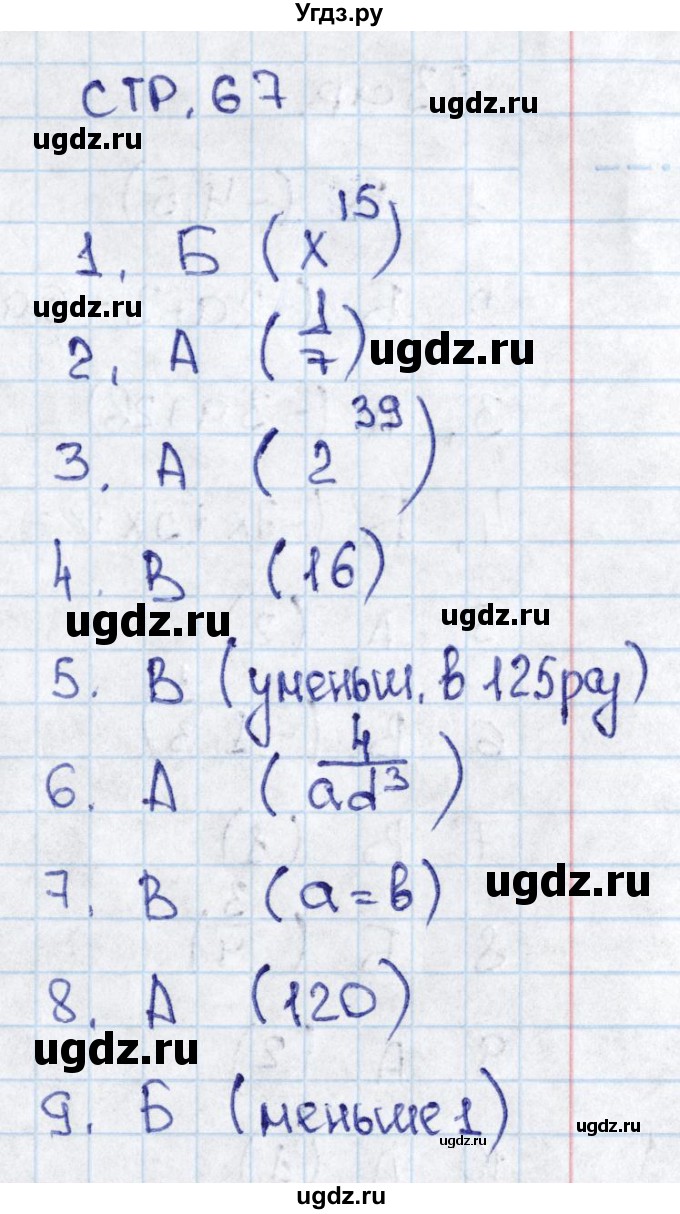 Угдз.ру
СТР. 67
ugdz.ru
ugdz.ru
1. Б (x¹⁵)
ugdz.ru
2. А (1/7)
ugdz.ru
3. А (2³⁹)
4. В (16)
ugdz.ru
ugdz.ru
5. В (уменьш. в 125 раз)
6. А (4/ad³)
7. В (a = b)
ugdz.ru
8. А (120)
ugdz.ru
9. Б (меньше 1)
ugdz.ru
ugdz.ru
ugdz.ru